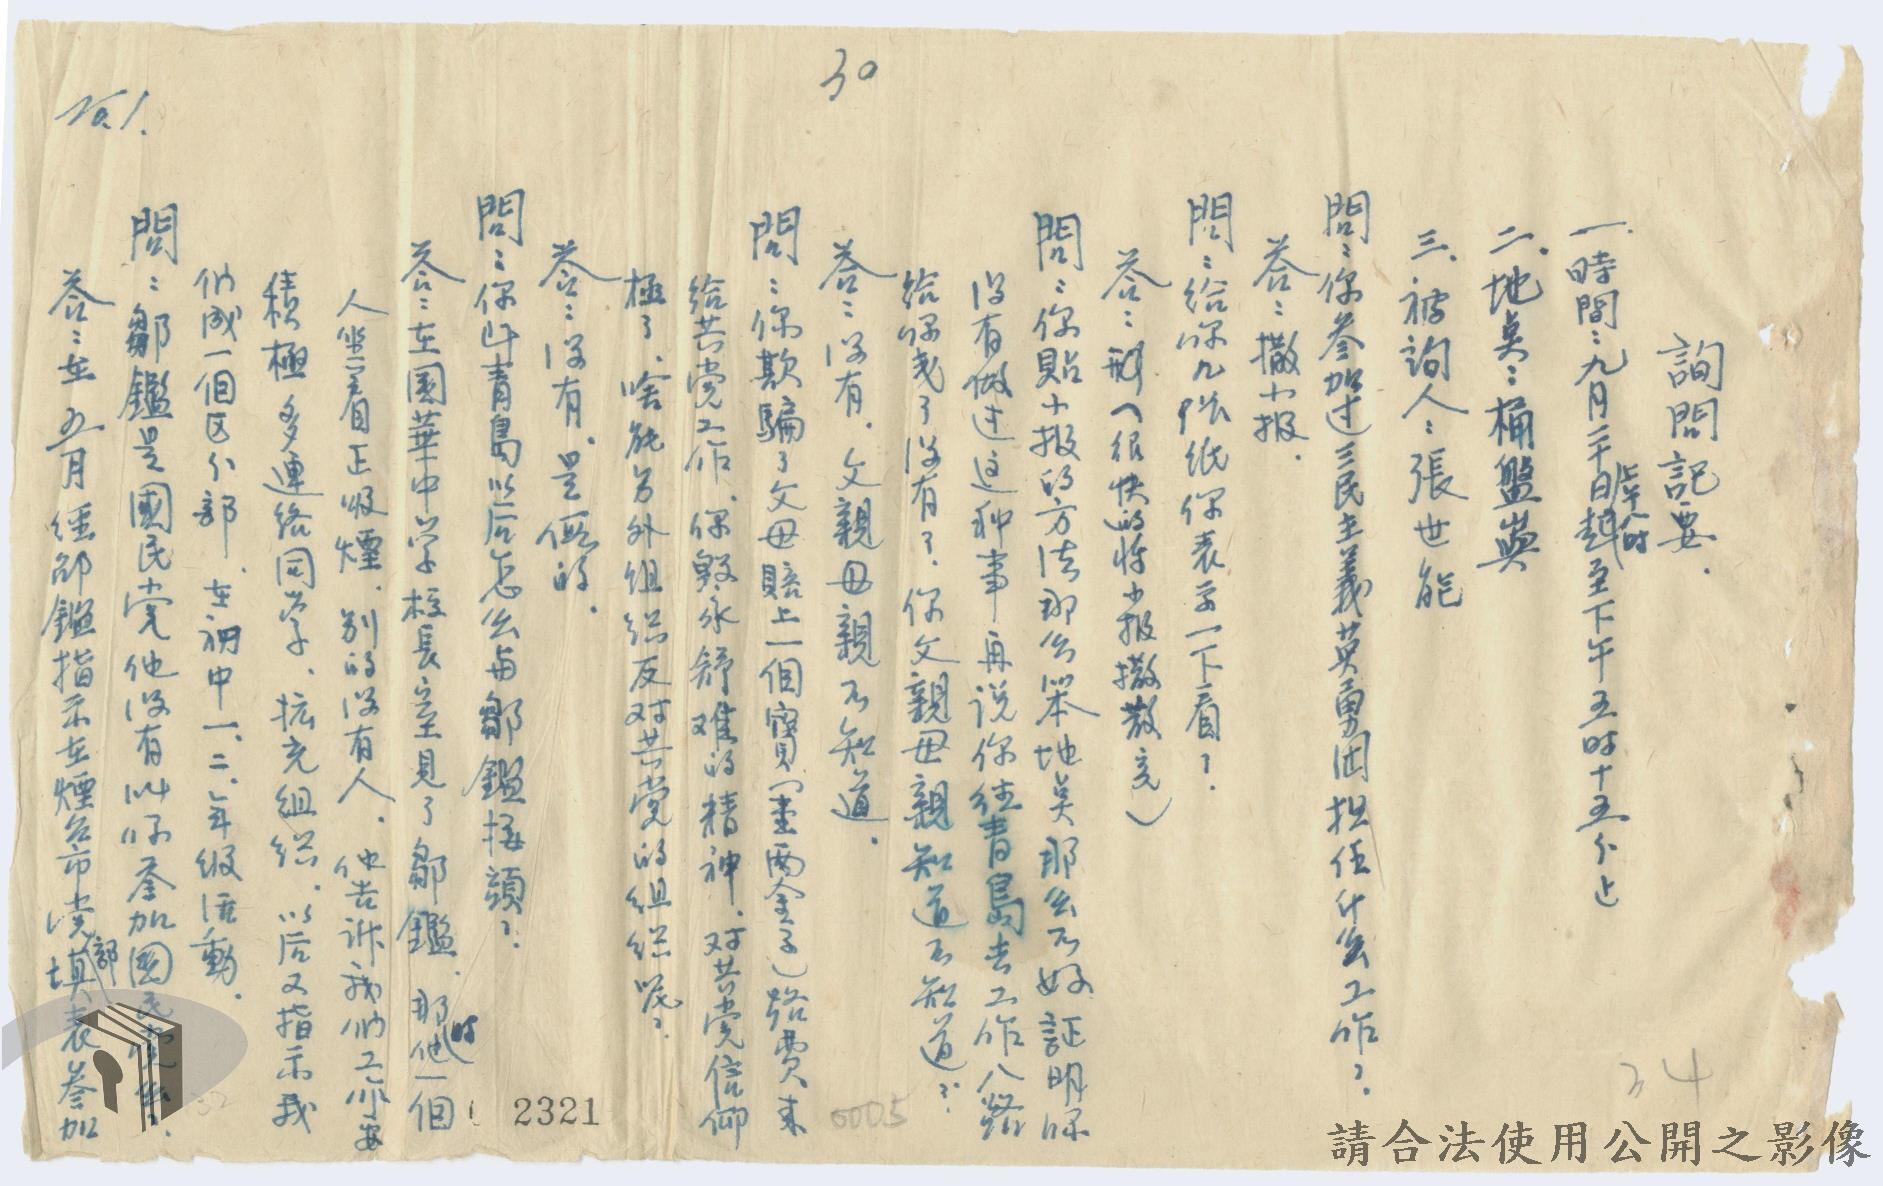 30
No.1.
詢問記要.
一.時間:九月二十日上午八时起至下午五时十五分止
二.地点:桶盤嶼
三.被詢人:張世能
問:你參加过三民主義英勇团担任什么工作?.
荅:撒小报.
問:給你九张纸你表示一下看?
荅:(很快的将小报撒散完)
問:你貼小报的方法那么笨地点那么不好証明你
没有做过这种事再说你往青島去工作八路
給你戋了没有?你父親母親知道不知道?
荅:没有.父親母親不知道.
問:你欺騙了父母賠上一個寶(壹两金子)路費来
给共党工作.你毀家紓难的精神.对共党信仰
極了.啥能另外组织反对共党的组织呢?
荅:没有.是假的.
問:你到青島以后怎么与鄒鑑接頭?.
荅:在國華中学校長室見了鄒鑑.那时他一個
人坐着正吸煙.别的没有人.他告诉我们工作要
積極多連絡同学.扩充组织.以后又指示我
们成一個区分部.在初中一.二.年级活動.
問:鄒鑑是國民党他没有叫你參加國民党么.
荅:在五月經邹鑑指示在煙台市党部填表參加
2321
0005
34
32
請合法使用公開之影像